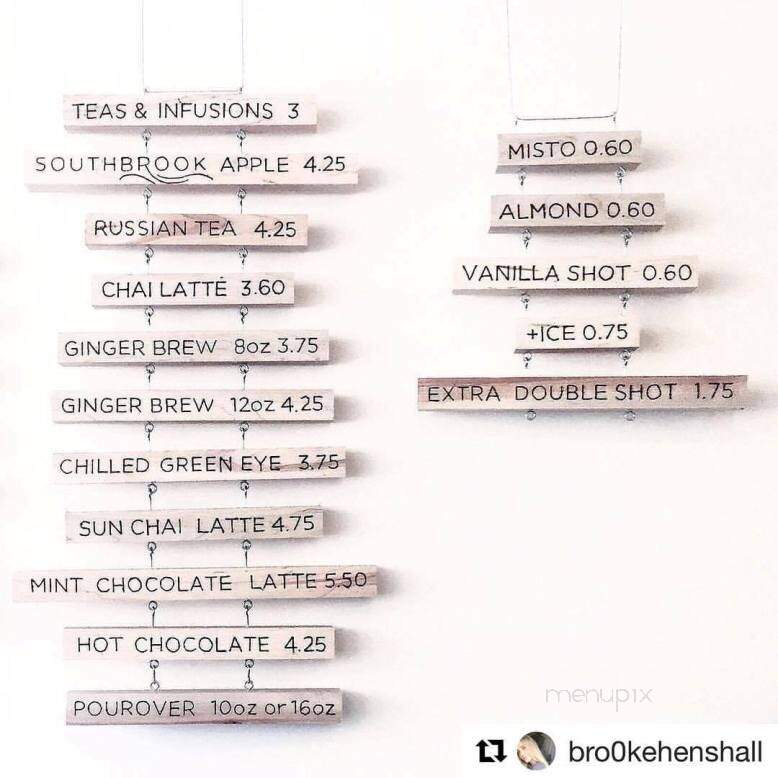 TEAS & INFUSIONS 3
SOUTHBROOK APPLE 4.25
RUSSIAN TEA 4.25
CHAI LATTE 3.60
GINGER BREW 8oz 3.75
GINGER BREW 12oz 4.25
CHILLED GREEN EYE 3.75
SUN CHAI LATTE 4.75
MINT CHOCOLATE LATTE 5.50
HOT CHOCOLATE 4.25
POUROVER 10oz or 16oz
MISTO 0.60
ALMOND 0.60
VANILLA SHOT 0.60
+ICE 0.75
EXTRA DOUBLE SHOT 1.75
menupix
bro0kehenshall